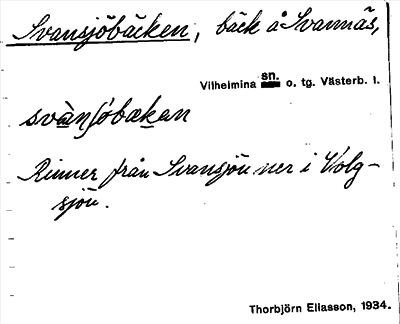 Svansjöbäcken, bäck å Svannäs,
Vilhelmina sn. o. tg. Västerb. l.
svànſöbækan
Rinner från Svansjön ner i Volg-
sjön.
Thorbjörn Eliasson, 1934.